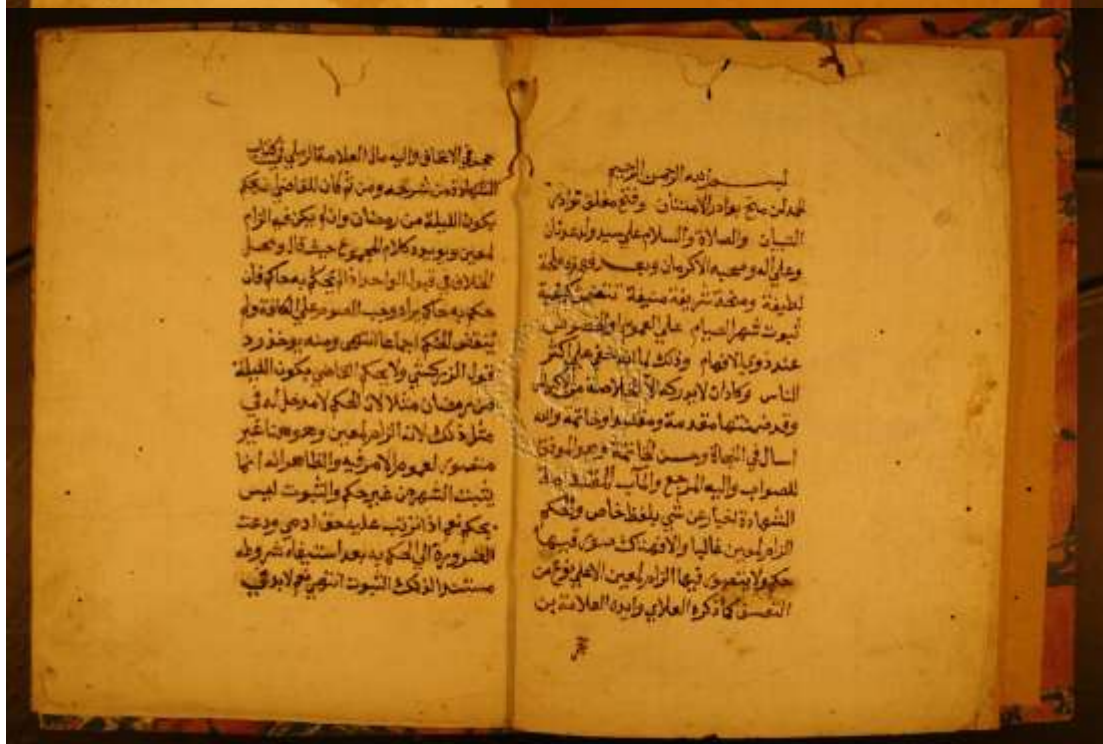 بسم الله الرحمن الرحيم
الحمد لمن منح بوادر الامتنان وفتح مغلق
التبيان والصلاة والسلام علي سيد ولد عدنان
وعلي اله وصحبه الاكرمان وبعد فهذه
لطيفة ومنحة شريفة منيفة تتضمن كيفية
ثبوت شهر الصيام علي العموم والخصوص
عند ذوي الافهام وذلك لما انه خفي علي اكثر
الناس وكاد ان لا يدركه الا الخلاصة من الاكياس
وقد ضمنتها مقدمة ومقصدا وخاتمة والله
اسال في النجاة وحسن الخاتمة وهو الموفق
للصواب واليه المرجع والماب المقدمة
الشهادة اخبار عن شي بلفظ خاص والحكم
الزام لمعين غالبا والا فهناك صور فيها
حكم ولا يتصور فيها الزام لمعين الا علي نوع من
التعسف كما ذكره العلاي وايده العلامة بن
حجر
حجر في الاتحاف واليه مال العلامة الرملي في كتاب
الشهادة من شرحه ومن ثم كان للقاضي ان يحكم
بكون الليلة من رمضان وان لم يكن فيه الزام
لمعين ويويده كلام المجموع حيث قال ومحل
الخلاف في قبول الواحد اذا لم يحكم به حاكم فان
حكم به حاكم يراه وجب الصوم علي الكافة ولم
ينقض الحكم اجماعا انتهي ومنه يوخذ رد
قول الزركشي ولا يحكم القاضي بكون الليلة
من رمضان مثلا لان الحكم لا مدخل له في
مثل ذلك لانه الزام لمعين وهو هنا غير
متصور لعموم الامر فيه والظاهر انه انما
يثبت الشهر من غير حكم والثبوت ليس
بحكم نعم اذا ترتب عليه حق ادمي ودعت
الضرورة الي الحكم به بعد استيفاء شروطه
مستندا لذلك الثبوت انتهي نعم لا بد في